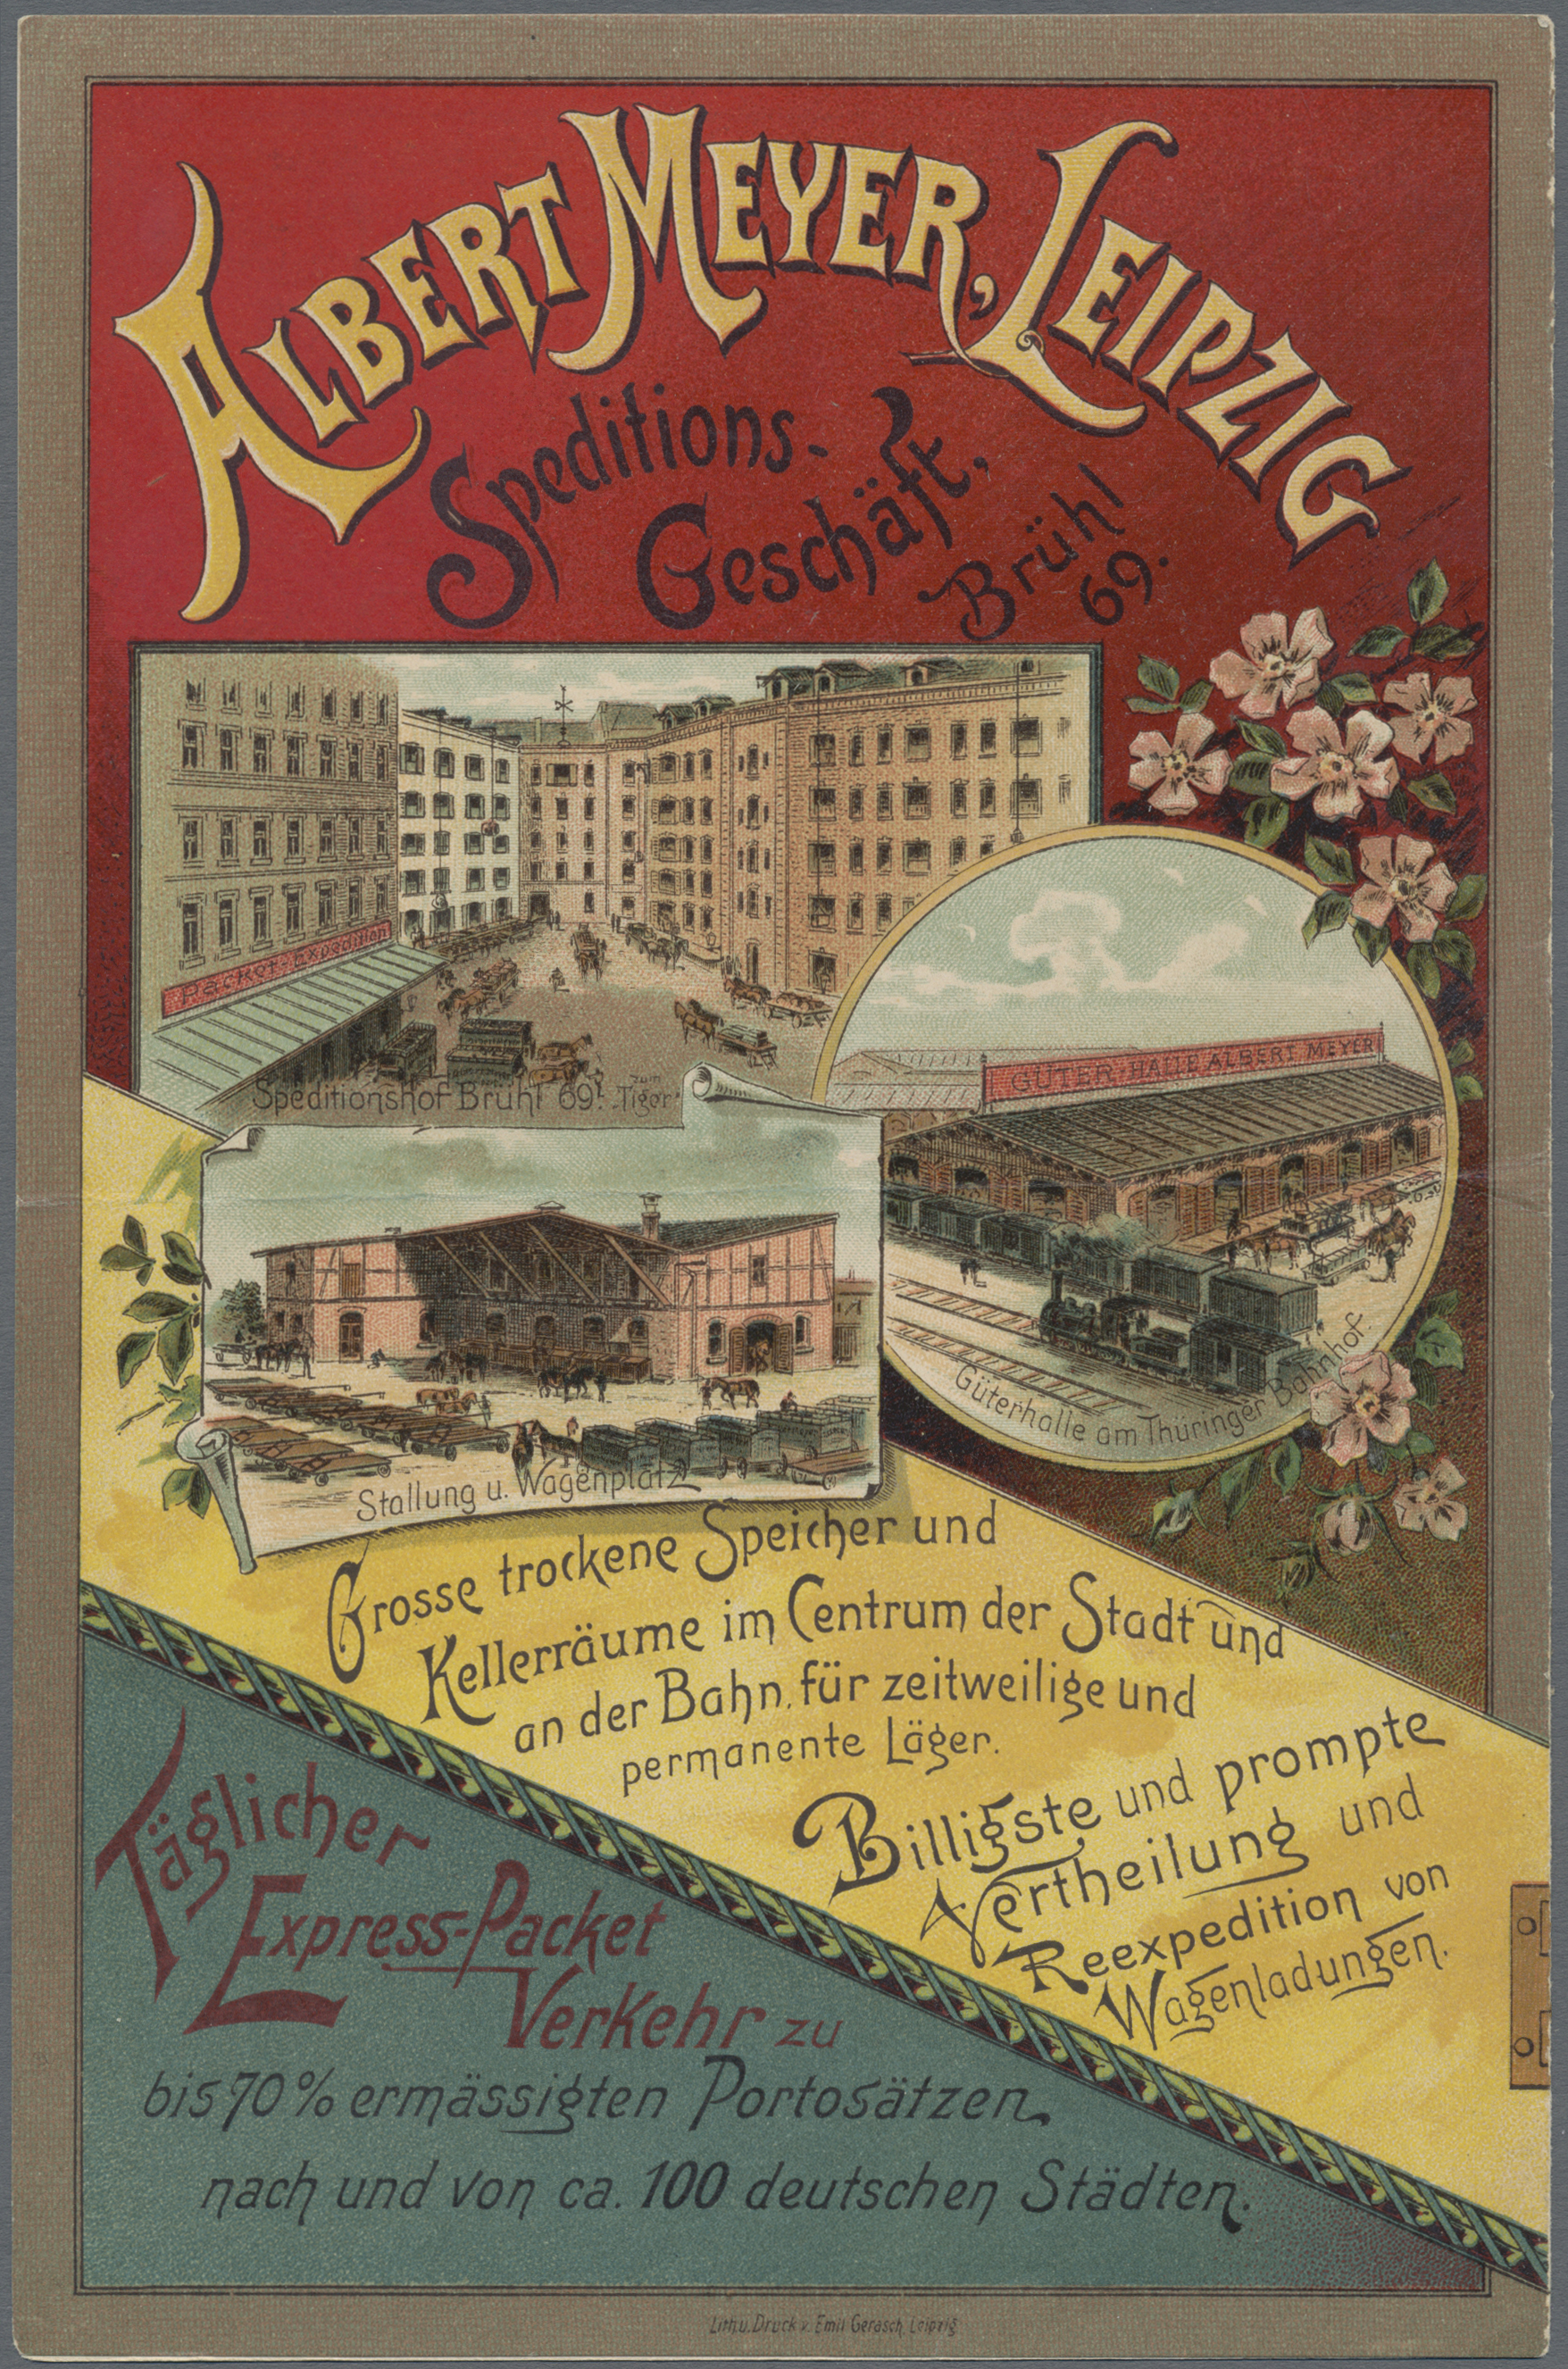 ALBERT MEYER, LEIPZIG
Speditions-
Geschäft,
Brühl
69.
Packet-Expedition
Speditionshof Brühl 69. zum Tiger
GÜTER-HALLE ALBERT MEYER
Güterhalle am Thüringer Bahnhof.
Stallung u. Wagenplatz
Grosse trockene Speicher und
Kellerräume im Centrum der Stadt und
an der Bahn, für zeitweilige und
permanente Läger.
Billigste und prompte
Vertheilung und
Reexpedition von
Wagenladungen.
Täglicher
Express-Packet
Verkehr zu
bis 70% ermässigten Portosätzen
nach und von ca. 100 deutschen Städten.
Lith. u. Druck v. Emil Gerasch, Leipzig